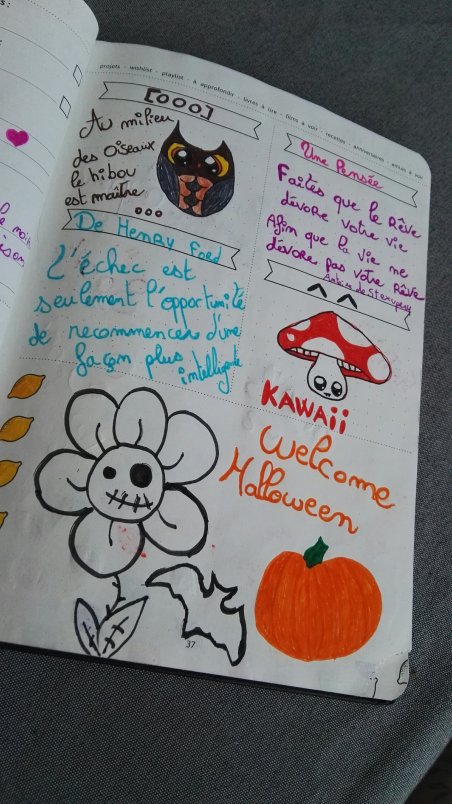 projets - wishlist - playlist - à approfondir - livres à lire - films à voir - recettes - anniversaires - amis à voir
[OOO]
Au milieu
des oiseaux
le hibou
est maître
...
Une Pensée
Faites que le Rêve
dévore votre vie
Afin que la vie ne
dévore pas votre Rêve
Antoine de St exupéry
De Henry Ford
L'échec est
seulement l'opportunité
de recommencer d'une
façon plus
intelligente
^ ^
KAWAii
Welcome
Halloween
37